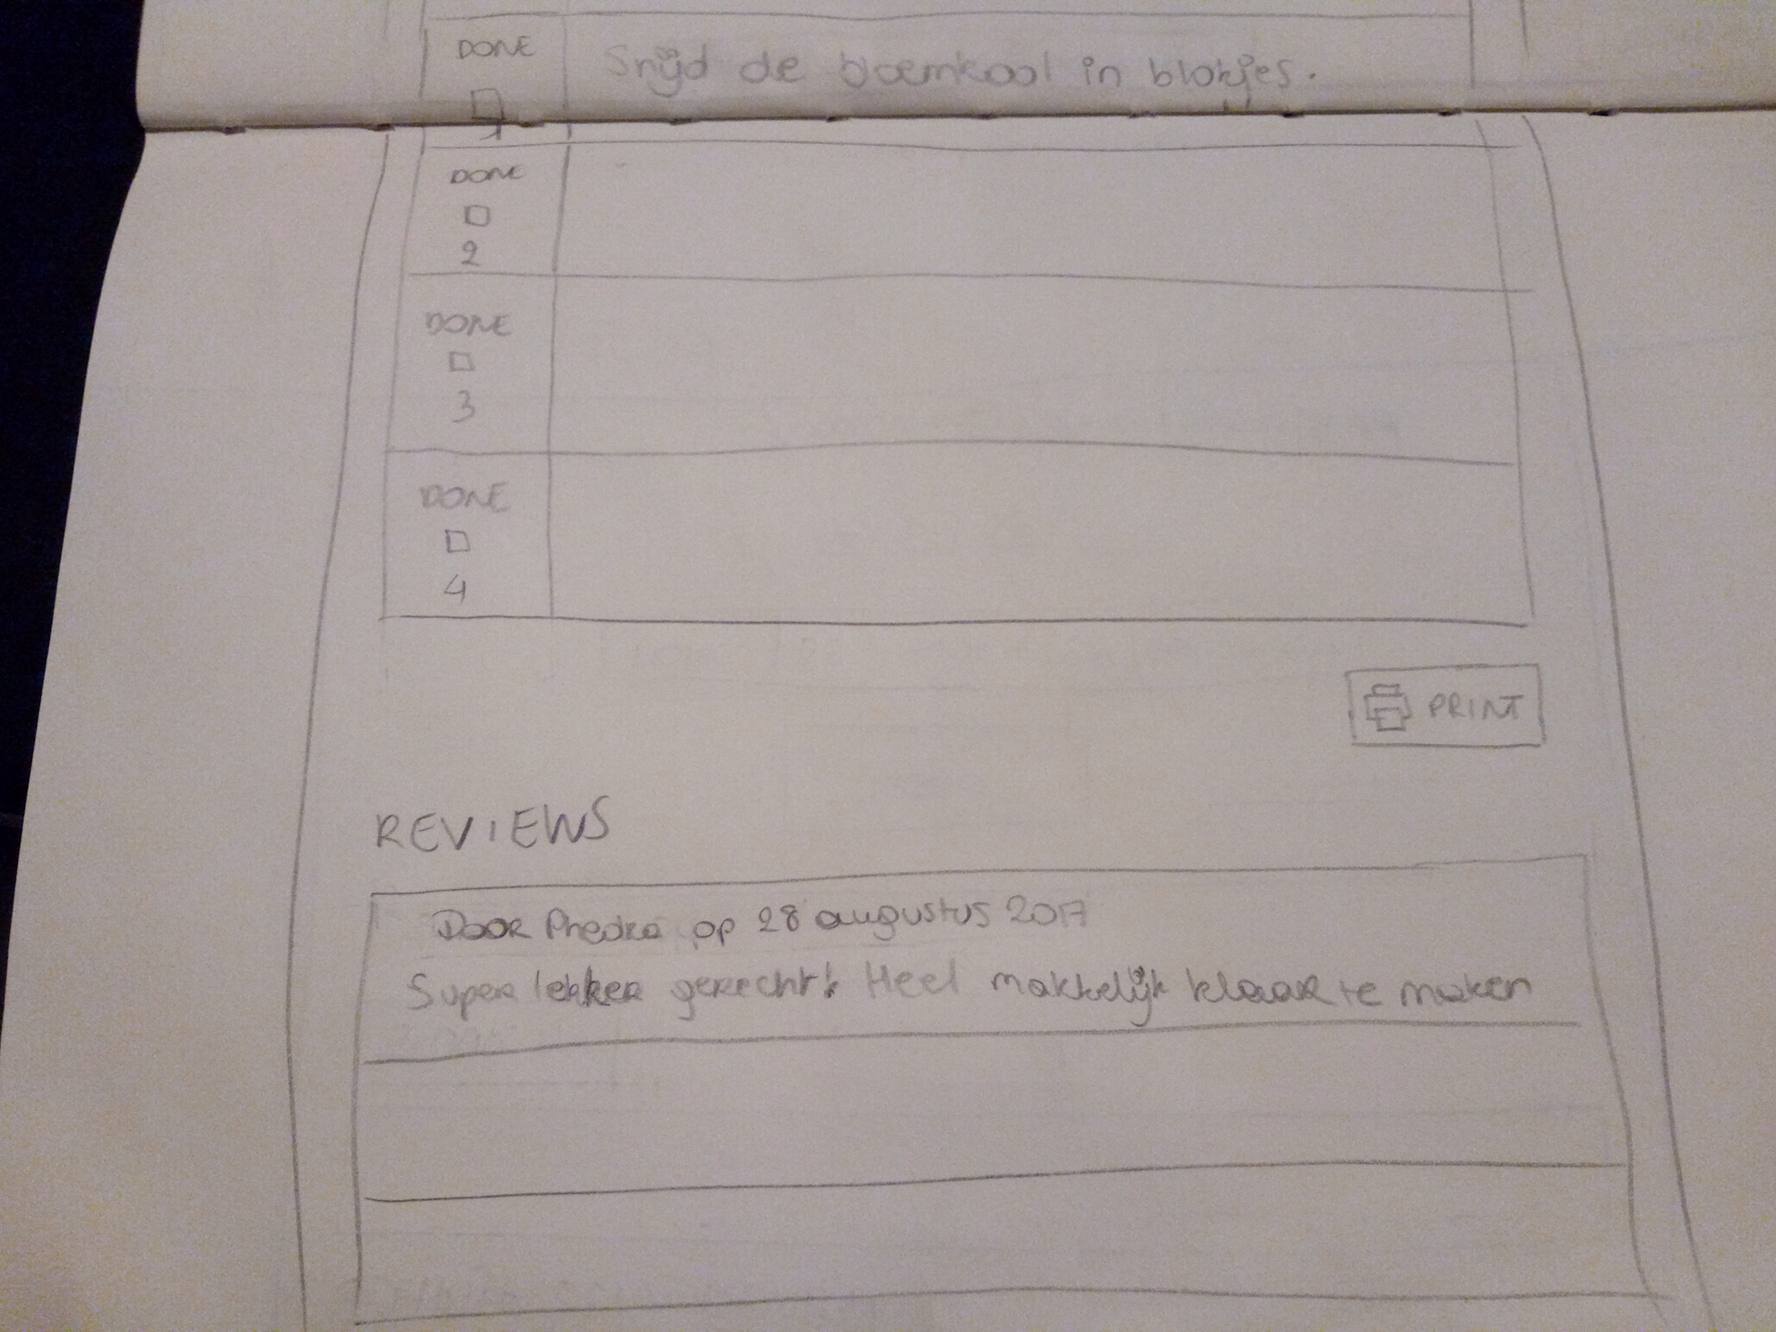 DONE
Snijd de bloemkool in blokjes.
DONE
2
DONE
3
DONE
4
PRINT
REVIEWS
Door Phedra op 28 augustus 2017
Super lekker gerecht! Heel makkelijk klaar te maken